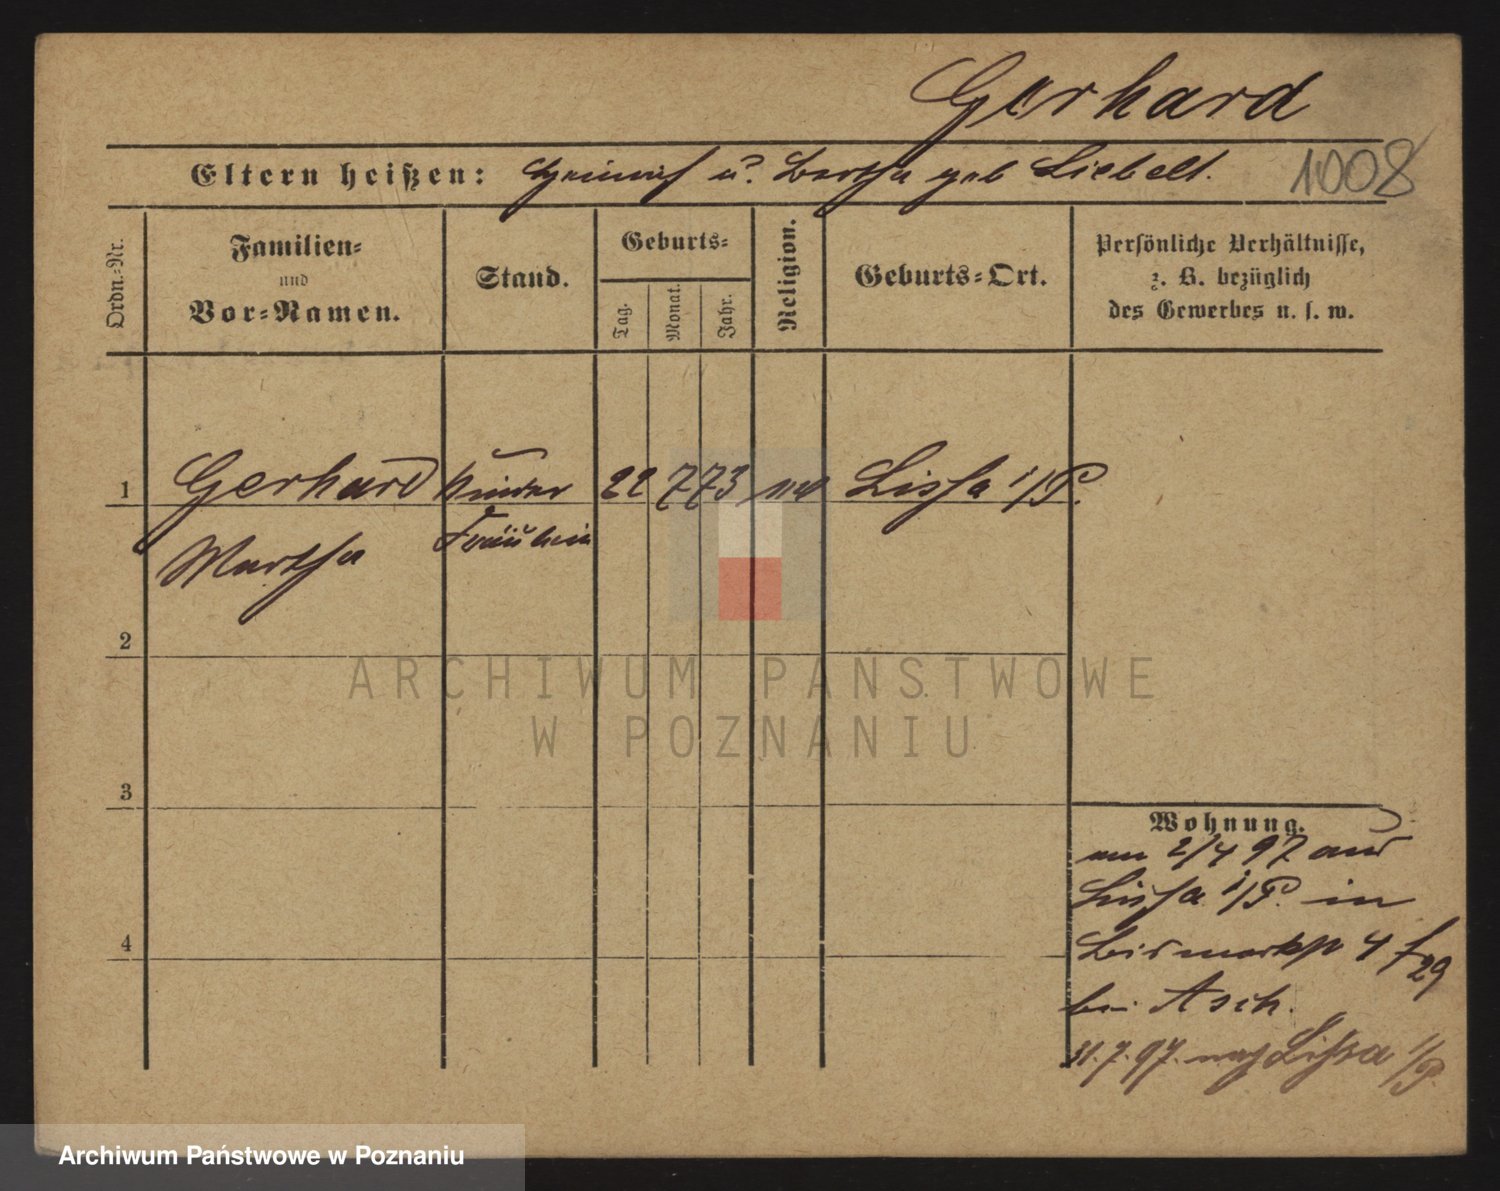 Gerhard
Eltern heißen: Heinrich u. Bertha geb Liebelt.
1008
Ordn.-Nr.
Familien-
und
Vor-Namen.
Stand.
Geburts-
Tag.
Monat.
Jahr.
Religion.
Geburts-Ort.
Persönliche Verhältnisse,
z. B. bezüglich
des Gewerbes u. s. w.
1 Gerhard Kinder 22 7 73 Lissa i/P.
Martha Fräulein
2
3
4
Wohnung.
am 2/4 97 aus
Lissa i/P. in
Bismarckstr 4
29
bei Asch.
31.7.97. nach Lissa i/P.
ARCHIWUM PAŃSTWOWE
W POZNANIU
Archiwum Państwowe w Poznaniu